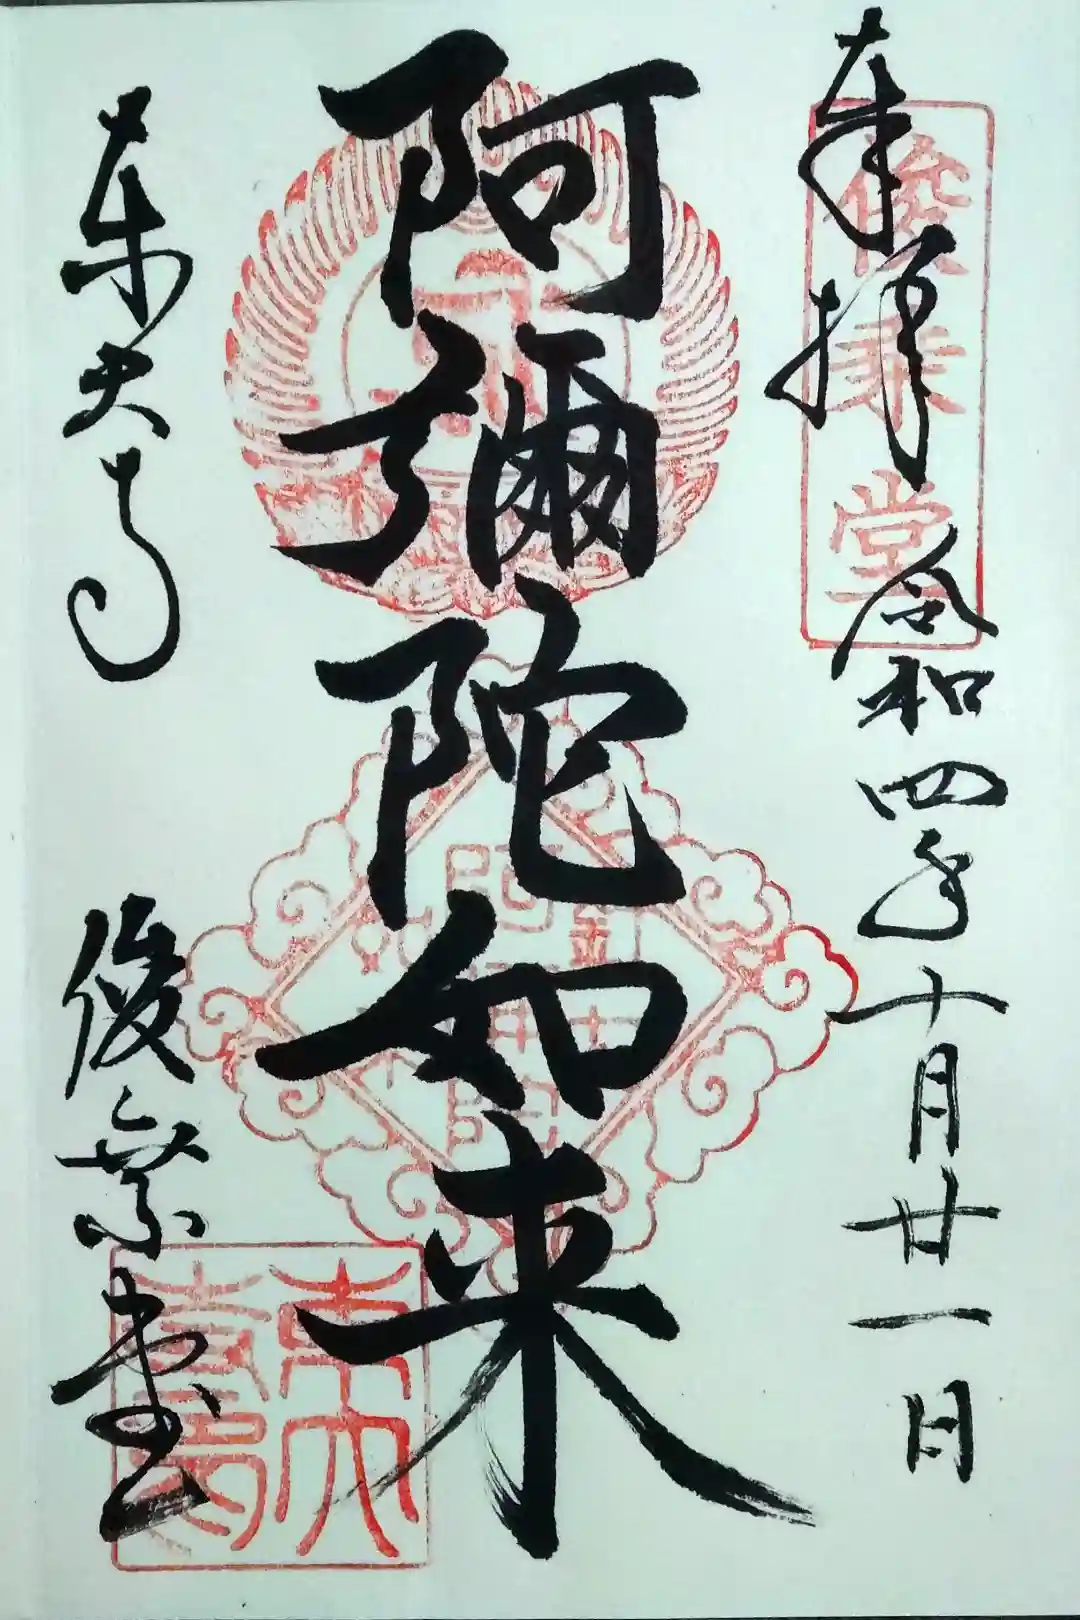 奉拝
令和四年十月廿一日
俊乗堂
阿彌陀如来
東大寺
俊乗堂
東大寺